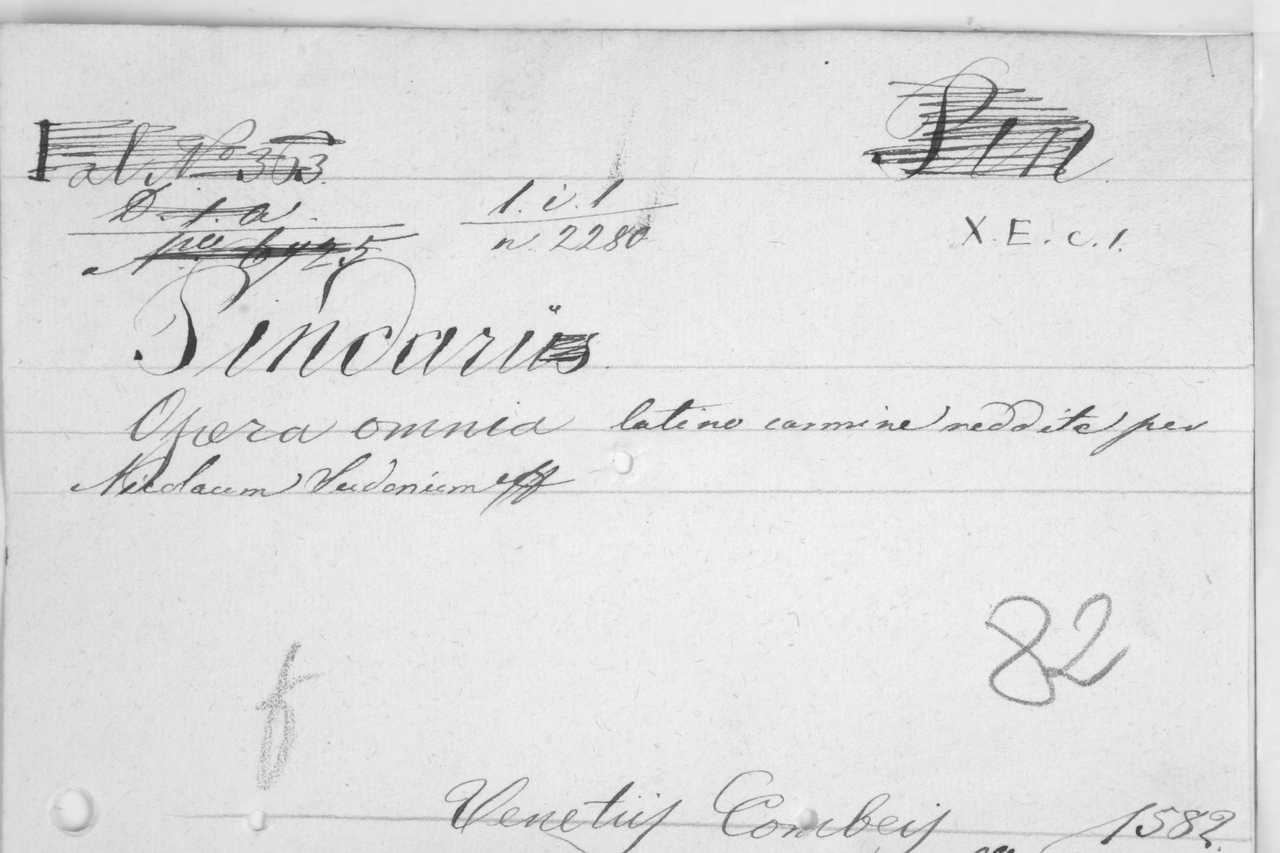 Pin
al No 363
D. j. a. 1. i. 1
No 6925 n. 2280 X. E. c. 1.
Pindarus
Opera omnia latino carmine reddita per
Nicolaum Sudorium
82
f
Venetiis Combeis 1582